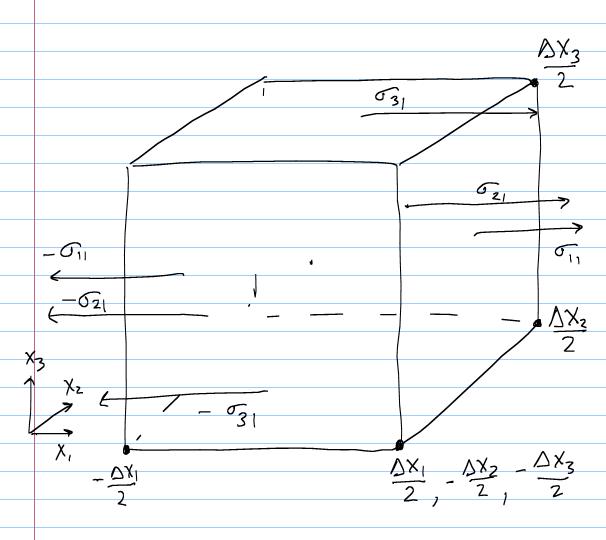 ΔX₃/2
σ₃₁
σ₂₁
σ₁₁
-σ₁₁
-σ₂₁
ΔX₂/2
X₃
X₂
X₁
-σ₃₁
-ΔX₁/2
ΔX₁/2, -ΔX₂/2, -ΔX₃/2